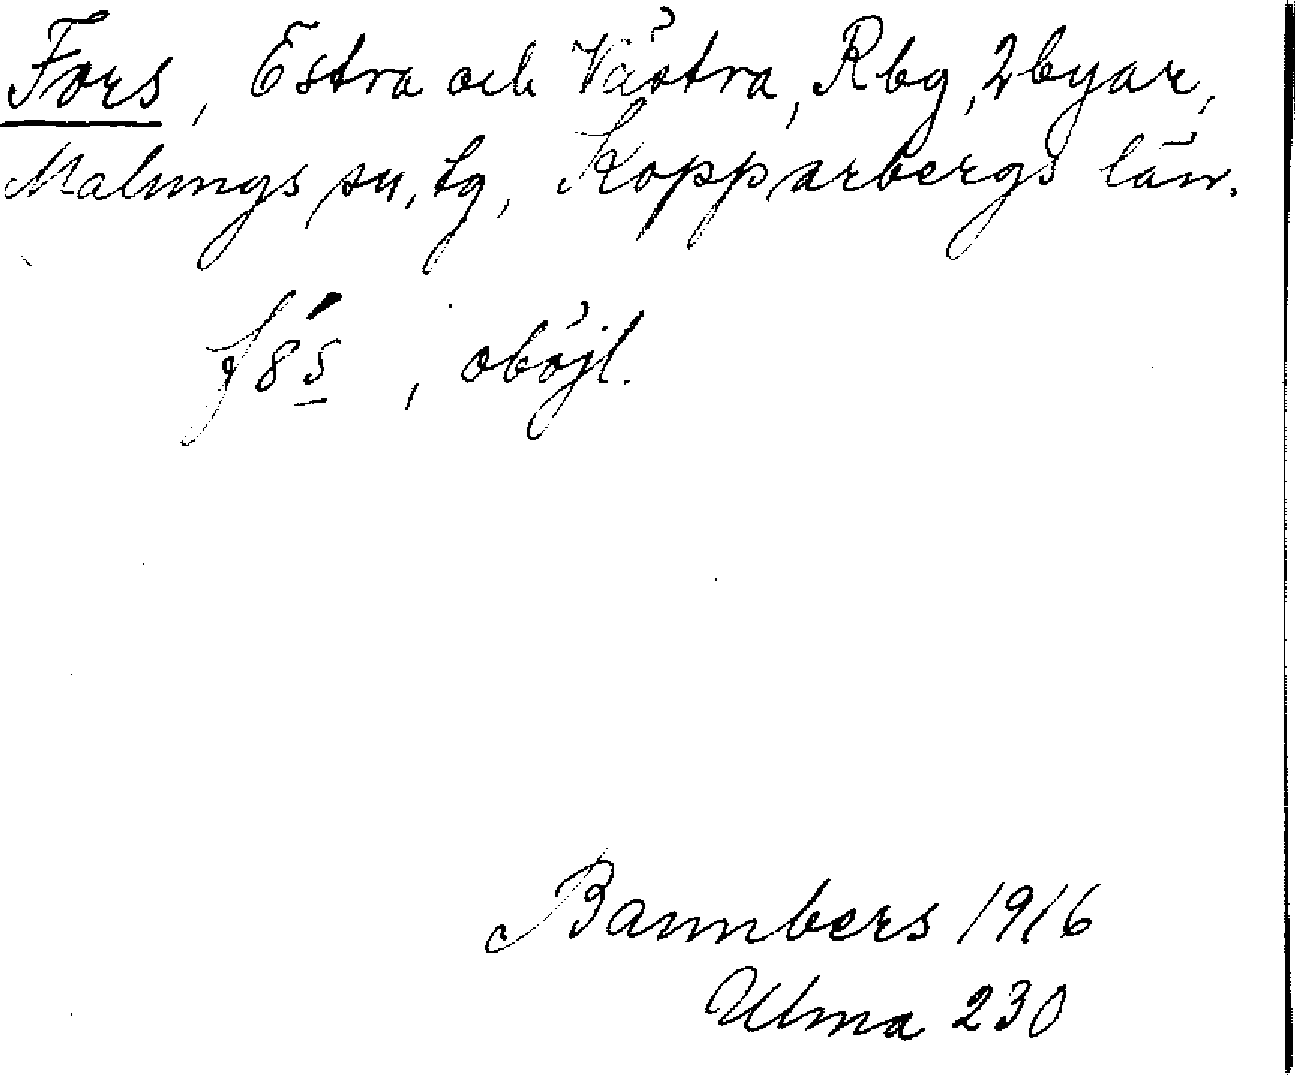 Fors, Estra och Västra, Rbg, 2 byar,
Malungs sn, tg, Kopparbergs län.
, oböjl.
Bannbers 1916
Ulma 230